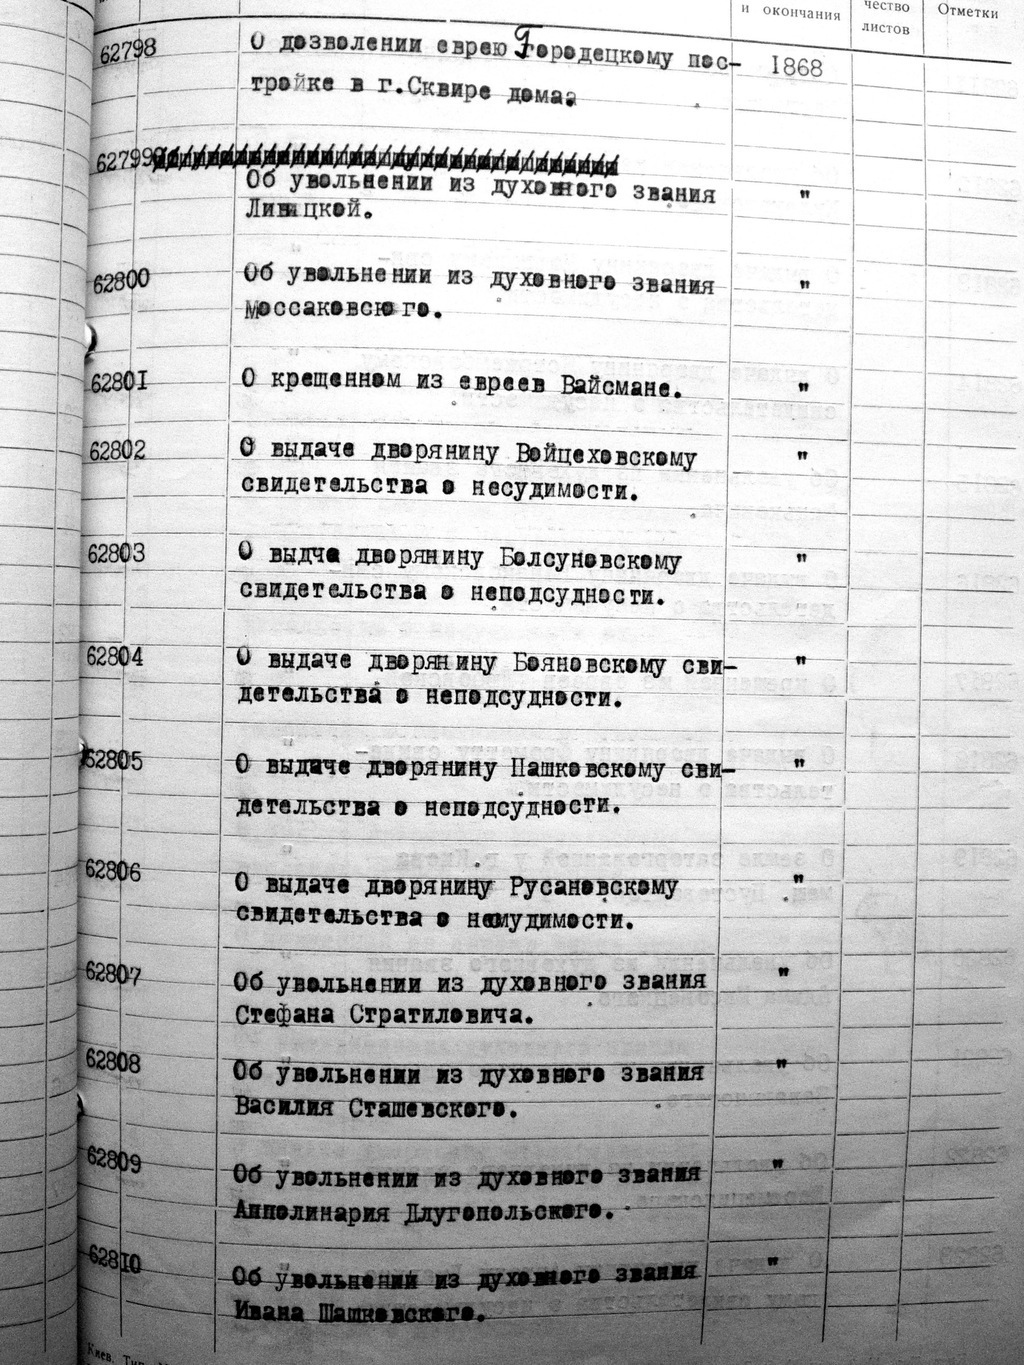 и окончания
чество
листов
Отметки
62798
О дозволении еврею Городецкому пос-
тройке в г.Сквире дома.
1868
62799
Об увольнении из духовного звания
"
62800
Об увольнении из духовного звания
"
Моссаковского.
62801
О крещенном из евреев Вайсмане.
"
62802
О выдаче дворянину Войцеховскому
"
свидетельства о несудимости.
62803
О выдче дворянину Болсуновскому
"
свидетельства о неподсудности.
62804
О выдаче дворянину Бояновскому сви-
"
детельства о неподсудности.
62805
О выдаче дворянину Пашковскому сви-
"
детельства о неподсудности.
62806
О выдаче дворянину Русановскому
"
свидетельства о
62807
Об увольнении из духовного звания
"
Стефана Стратиловича.
62808
Об увольнении из духовного звания
"
Василия Сташевского.
62809
Об увольнении из духовного звания
"
Апполинария Длугопольского.
62810
Об увольнении из духовного звания
"
Ивана Шашковского.
Киев. Тип.